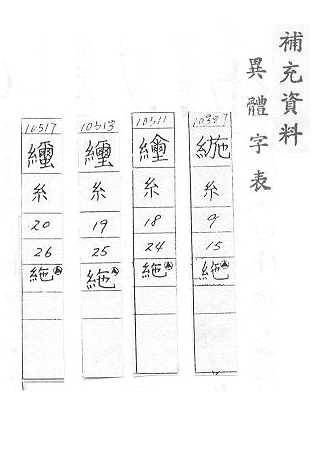 補充資料
異體字表
10397
䌳
糸
9
15
絁
10511
糸
18
24
絁
10513
糸
19
25
絁
10517
糸
20
26
絁